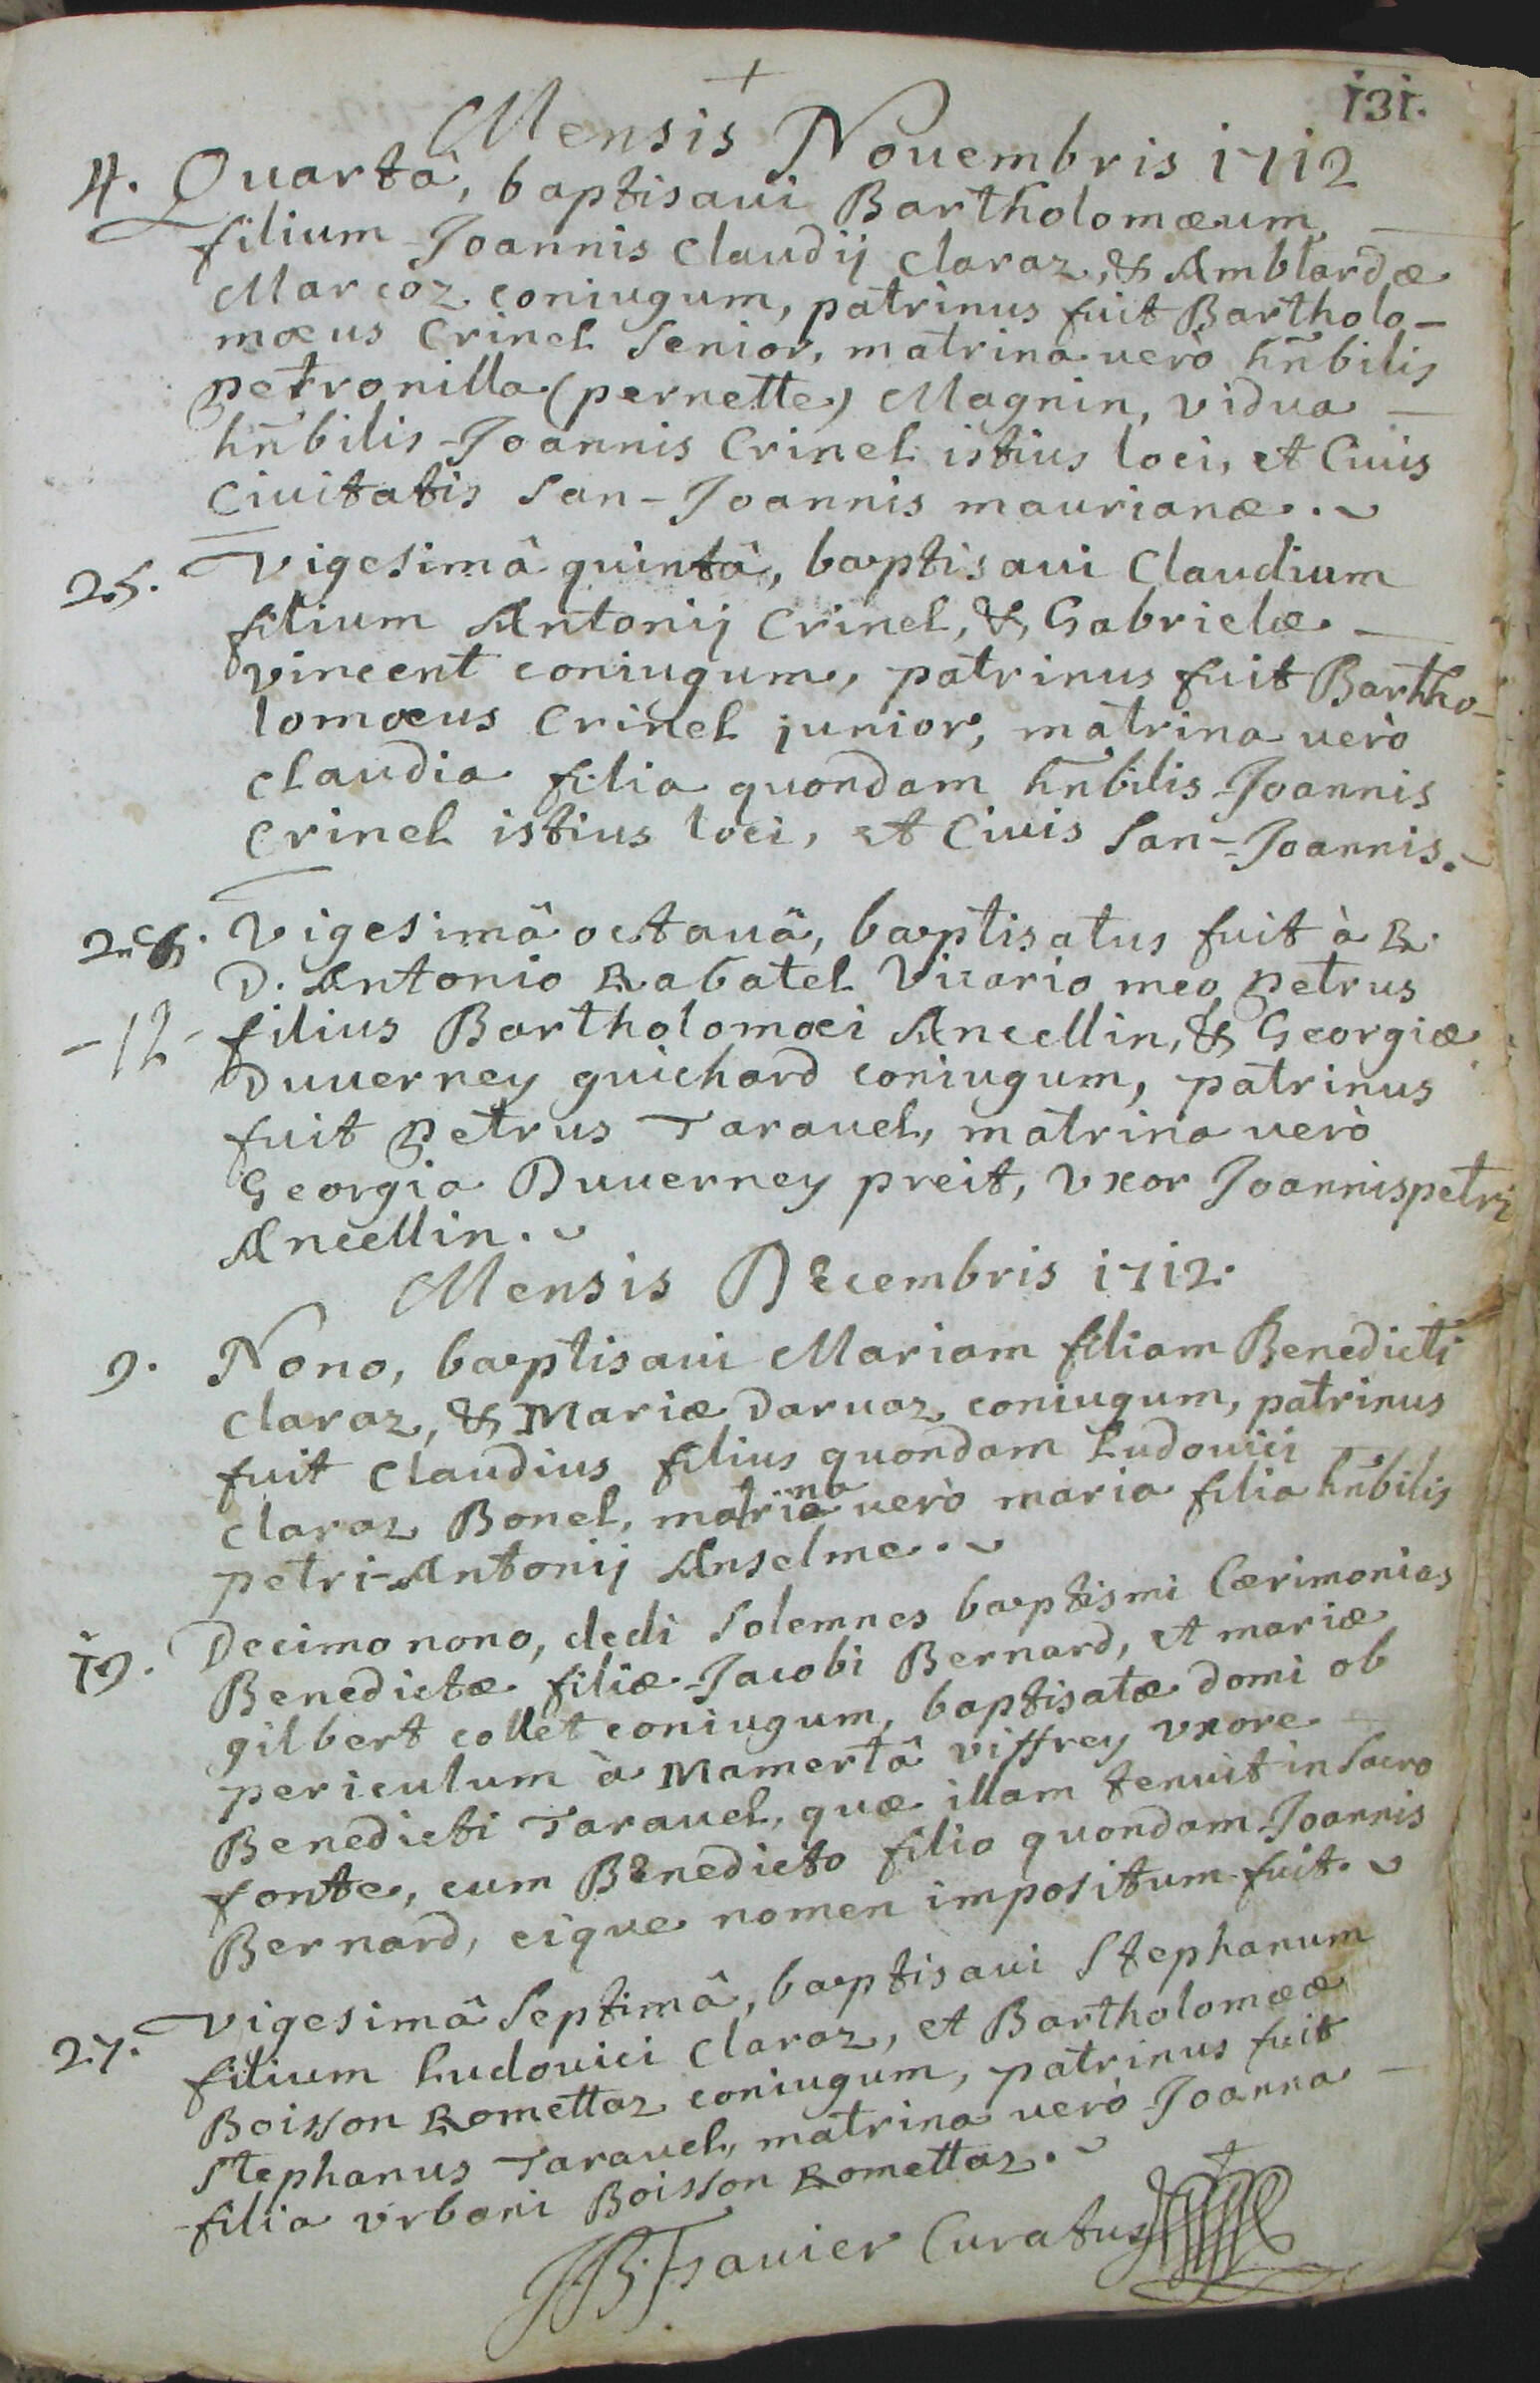 +
131.
Mensis Nouembris 1712
4. Quartâ, baptisaui Bartholomæum
filium Joannis Claudij Claraz, & Amblardæ
Marcoz coniugum, patrinus fuit Bartholo-
mæus Crinel Senior, matrina verò hñbilis
petronilla (pernette) Magnin, vidua
hñbilis Joannis Crinel istius loci, et Ciuis
Ciuitatis San-Joannis maurianæ.
25. Vigesimâ quintâ, baptisaui Claudium
filium Antonij Crinel, & Gabrielæ
vincent coniugum, patrinus fuit Bartho-
lomæus Crinel junior, matrina verò
Claudia filia quondam hñbilis Joannis
Crinel istius loci, et Ciuis San-Joannis.
28. Vigesimâ octauâ, baptisatus fuit à R.
D. Antonio Rabatel Vicario meo petrus
-12- filius Bartholomæi Ancellin, & Georgiæ
Duuerney guichard coniugum, patrinus
fuit petrus Tarauel, matrina verò
Georgia Duuerney preit, vxor Joannispetri
Ancellin.
Mensis Decembris 1712.
9. Nono, baptisaui Mariam filiam Benedicti
Claraz, & Mariæ Daruaz coniugum, patrinus
fuit Claudius filius quondam Ludouici
Claraz Bonel, matrina verò maria filia hñbilis
petri-Antonij Anselme.
19. Decimo nono, dedi Solemnes baptismi Cærimonias
Benedictæ filiæ Jacobi Bernard, et mariæ
gilbert collet coniugum, baptisatæ domi ob
periculum à Mamertâ viffrey vxore
Benedicti Tarauel, quæ illam tenuit in Sacro
fonte, cum Benedicto filio quondam Joannis
Bernard, eique nomen impositum fuit.
27. Vigesimâ Septimâ, baptisaui Stephanum
filium Ludouici Claraz, et Bartholomææ
Boisson Romettaz coniugum, patrinus fuit
Stephanus Tarauel, matrina verò Joanna
filia vrbani Boisson Romettaz.
Curatus